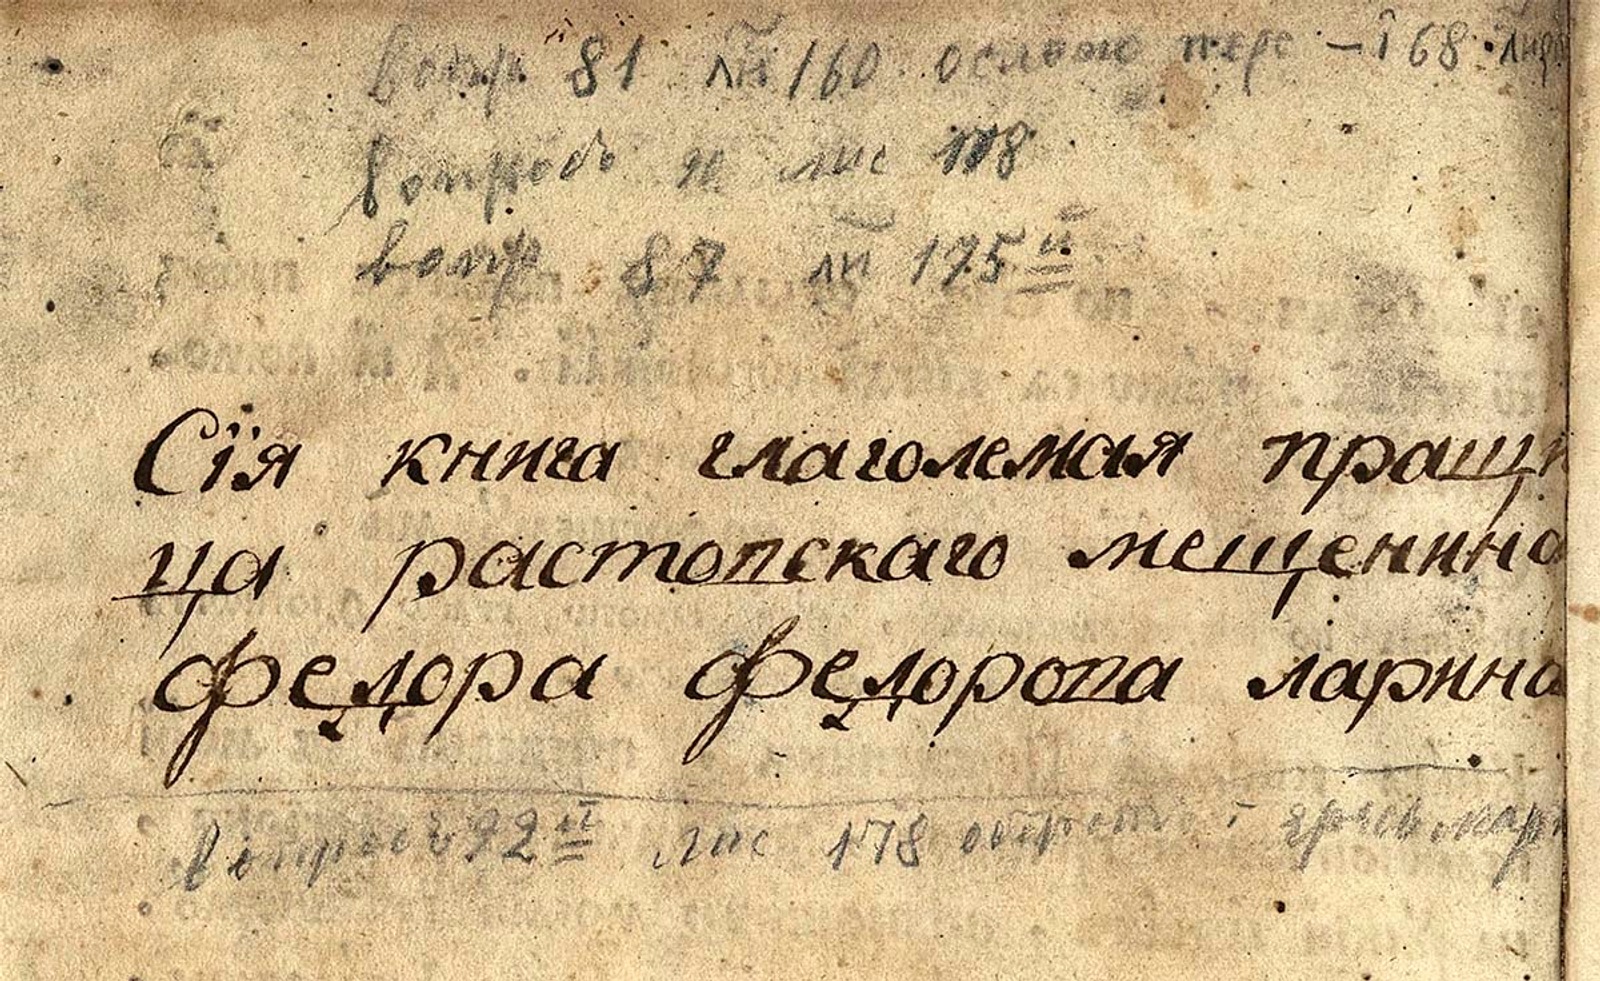 вопр 81 ли 160 ослож перс – і 68
вопросъ лис 118
вопр 87 ли 175й
Сїя книга глаголемая пращи
ца растопскаго мещенина
федора федоропа ларина
Вопросъ 92й лис 178 оборотъ і